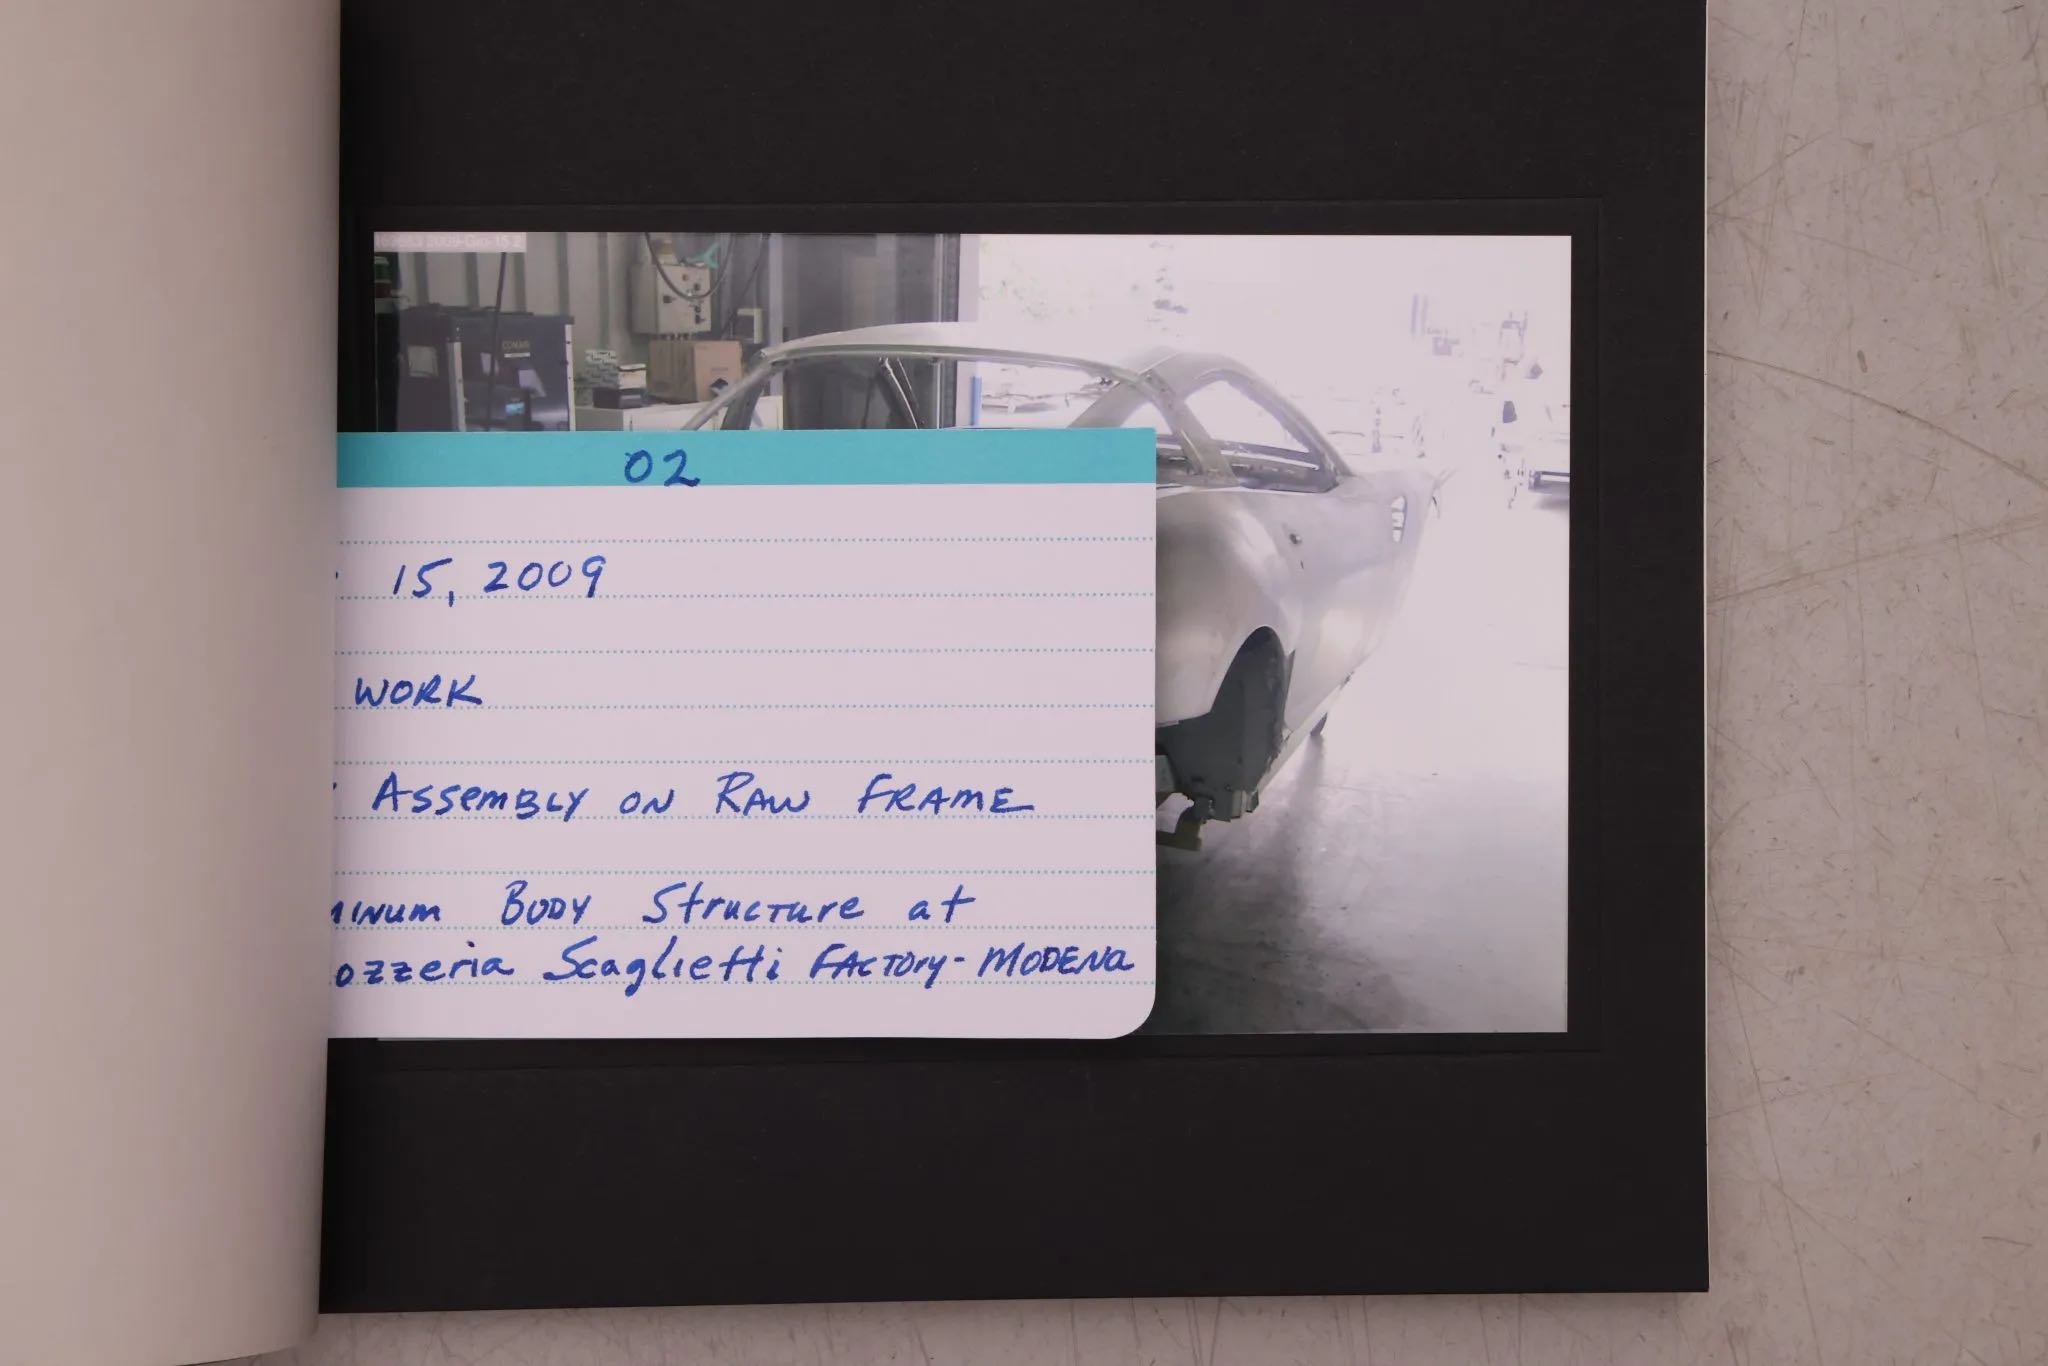 163663 2009-Giu-15 2
COMAIR
02
15, 2009
WORK
ASSEMBLY ON RAW FRAME
MINUM BODY STRUCTURE at
ozzeria Scaglietti FACTORY - MODENA